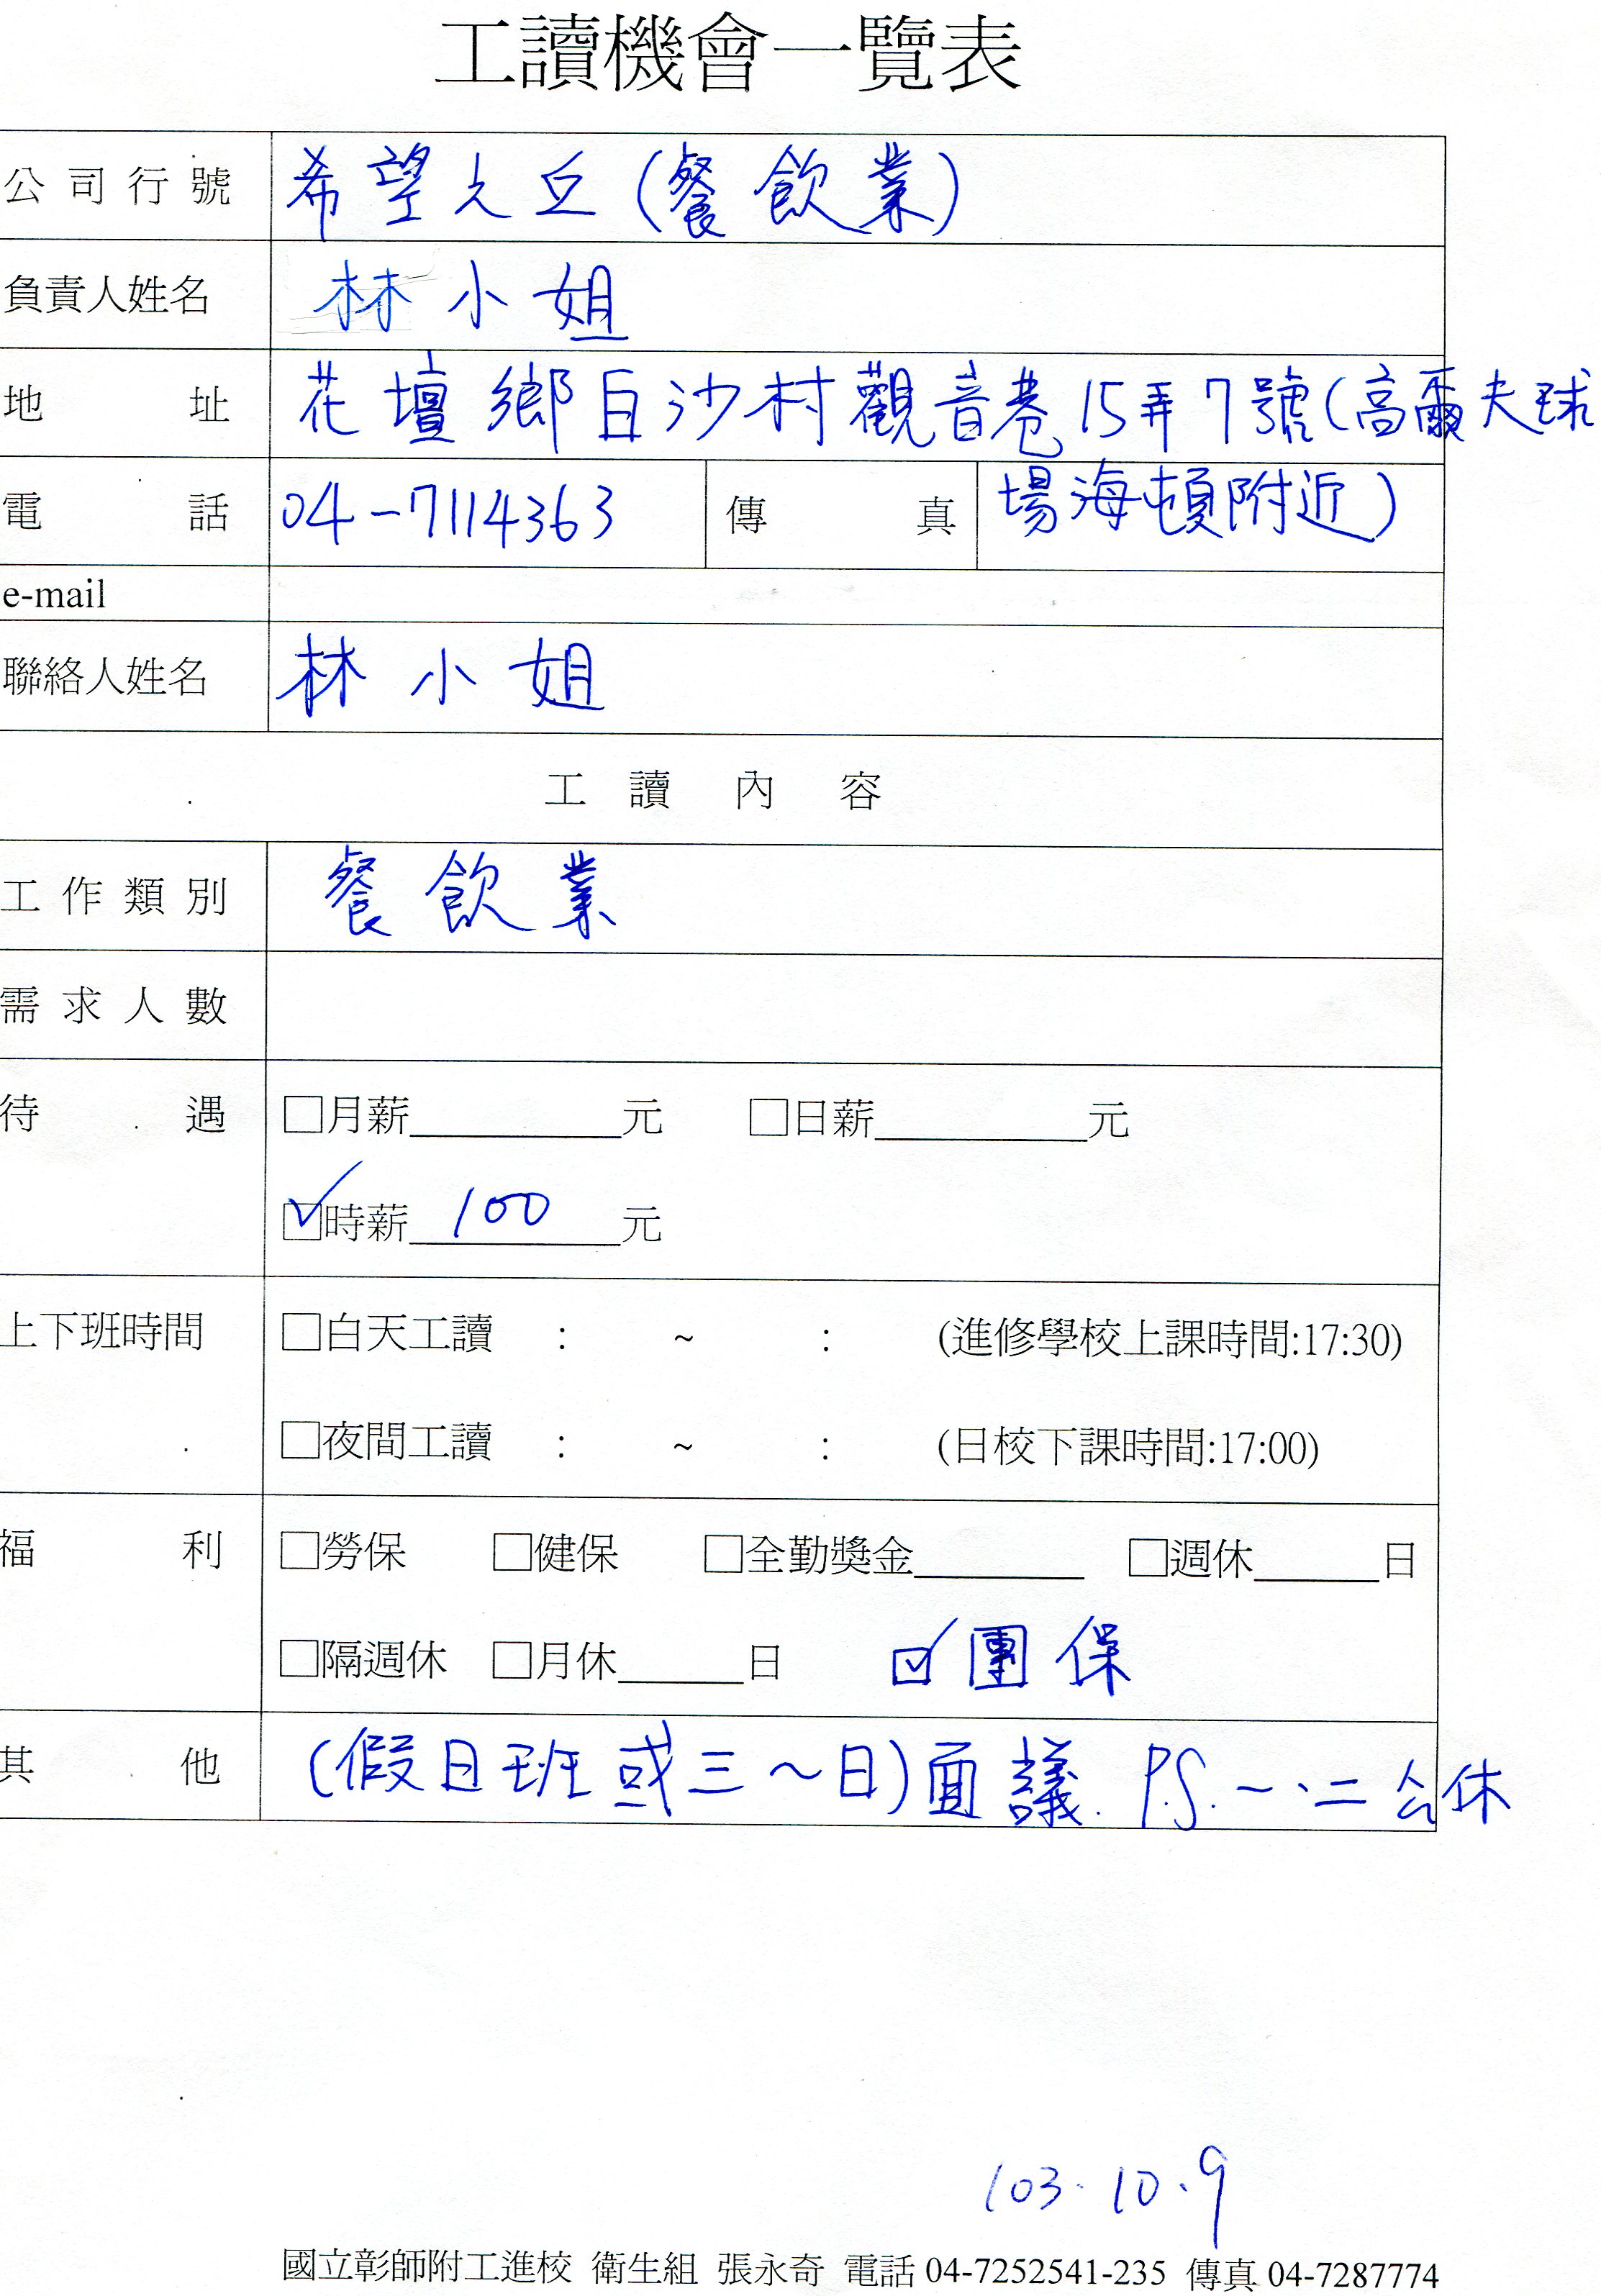 工讀機會一覽表
公司行號 希望之丘(餐飲業)
負責人姓名 林小姐
地址 花壇鄉白沙村觀音巷15弄7號(高爾夫球
電話 04-7114363 傳真 場海頓附近)
e-mail
聯絡人姓名 林小姐
工讀內容
工作類別 餐飲業
需求人數
待遇 □月薪__________元 □日薪__________元
☑時薪 100 元
上下班時間 □白天工讀 : ~ : (進修學校上課時間:17:30)
□夜間工讀 : ~ : (日校下課時間:17:00)
福利 □勞保 □健保 □全勤獎金________ □週休______日
□隔週休 □月休______日 ☑團保
其他 (假日班或三~日)面議. P.S. 一、二公休
103.10.9
國立彰師附工進校 衛生組 張永奇 電話 04-7252541-235 傳真 04-7287774